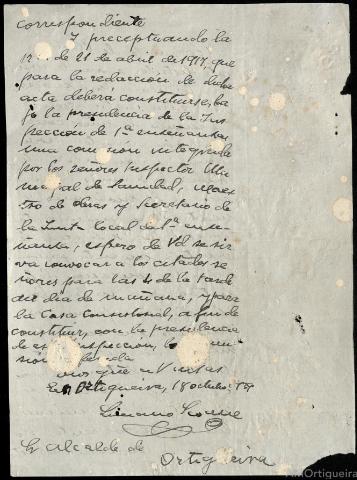 correspondiente
Y preceptuando la
de 21 de abril de 1917, que
para la redacción de dicha
acta deberá constituirse, ba
jo la presidencia de la Ins
pección de 1ª enseñanza,
una comisión integrada
por los señores Inspector Mu
nicipal de Sanidad, Maes
tro de obras y Secretario de
la Junta local de 1ª ense
ñanza, espero de Vd se sir
va convocar a los citados se
ñores para las 4 de la tarde
del día de mañana, y para
la Casa Consistorial, a fin de
constituir, con la presidencia
de esta Inspección, la
sión
que
En Ortigueira, 18 octubre
Sr Alcalde de
Ortigueira
AMOrtigueira